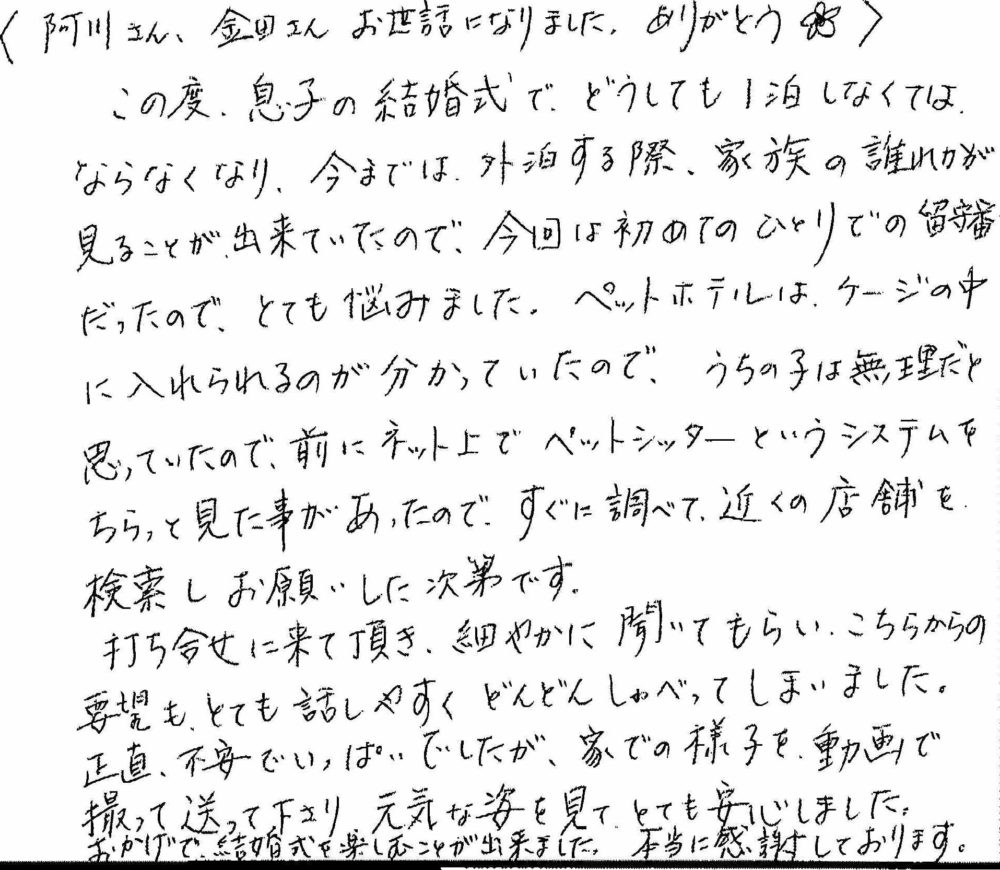 〈 阿川さん、金田さん お世話になりました。ありがとう 〉
この度、息子の結婚式で、どうしても1泊しなくては、
ならなくなり、今までは、外泊する際、家族の誰れかが
見ることが、出来ていたので、今回は初めてのひとりでの留守番
だったので、とても悩みました。ペットホテルは、ケージの中
に入れられるのが分かっていたので、うちの子は無理だと
思っていたので、前にネット上でペットシッターというシステムを
ちらっと見た事があったので、すぐに調べて、近くの店舗を、
検索しお願いした次第です。
打ち合せに来て頂き、細やかに聞いてもらい、こちらからの
要望も、とても話しやすくどんどんしゃべってしまいました。
正直、不安でいっぱいでしたが、家での様子を、動画で
撮って送って下さり 元気な姿を見て、とても安心しました。
おかげで、結婚式を楽しむことが出来ました。本当に感謝しております。